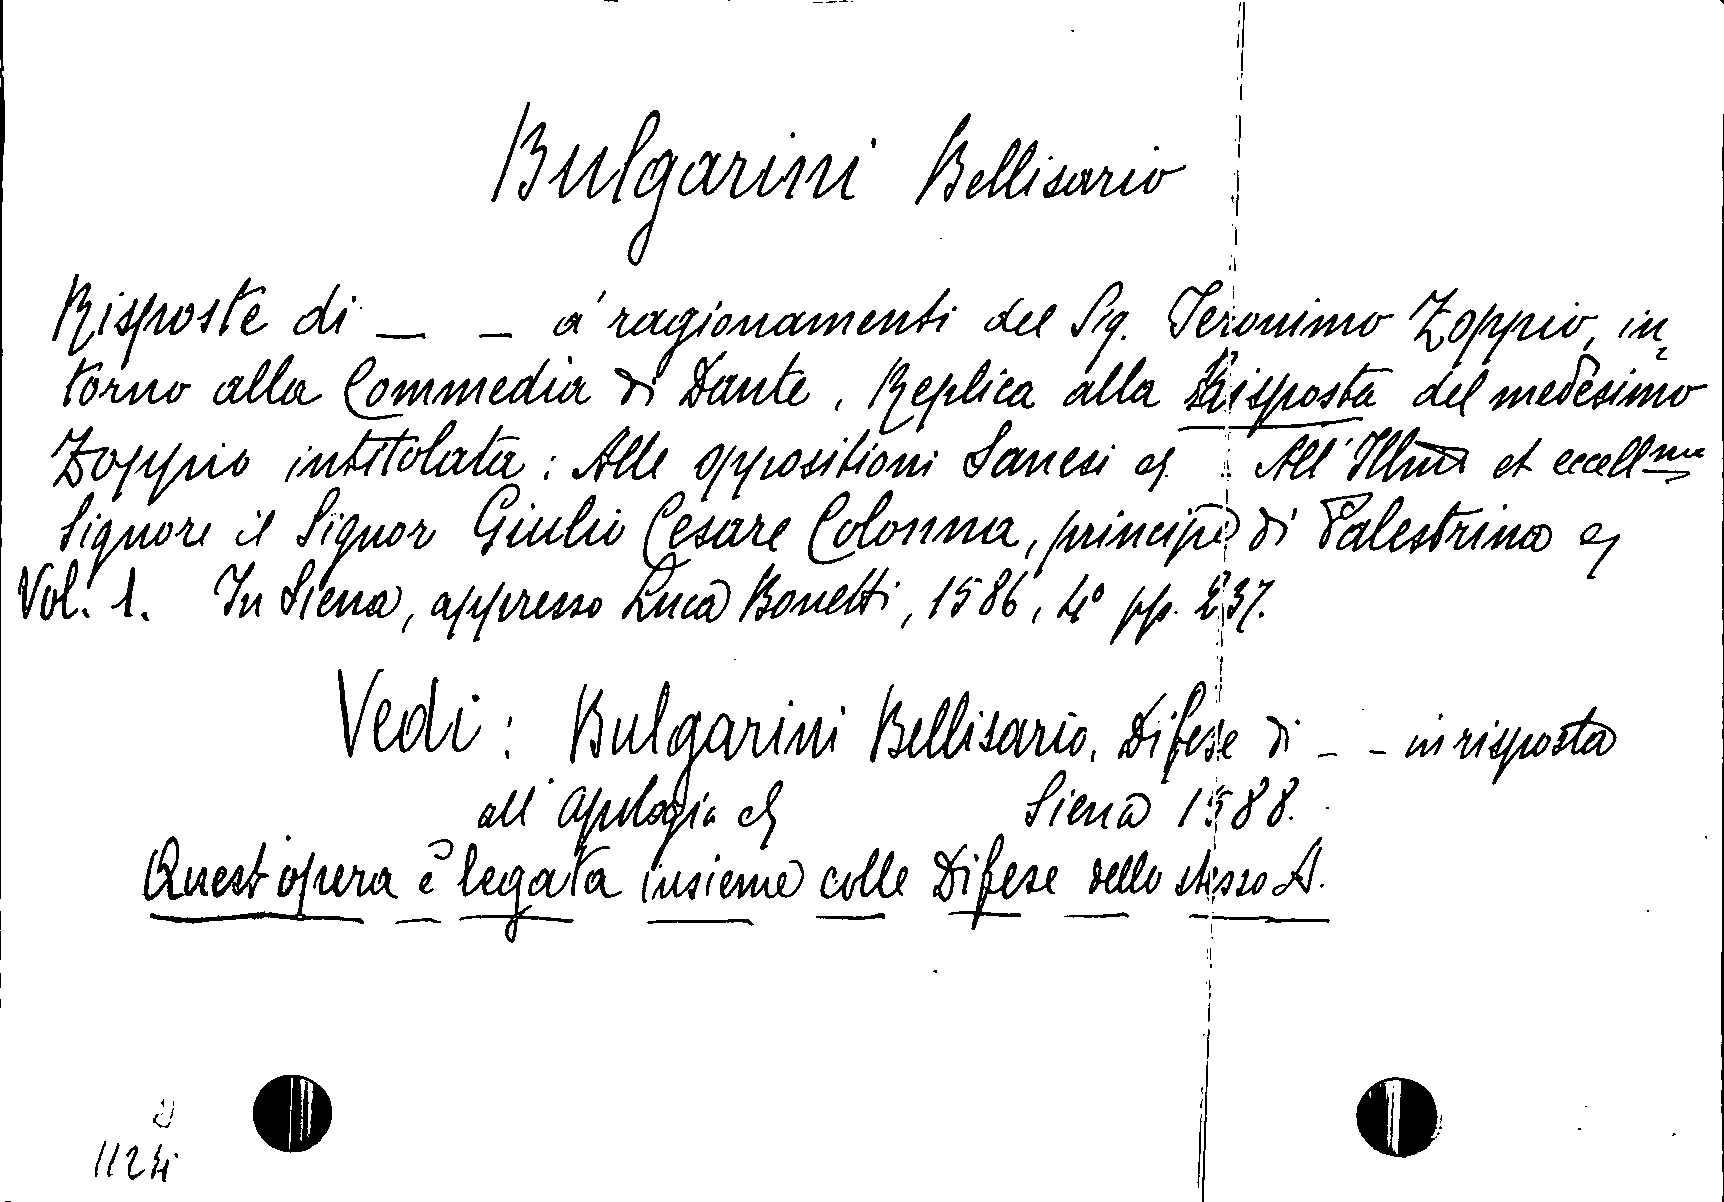 Bulgarini Bellisario
Risposte di — — a' ragionamenti del Sig. Jeronimo Zoppio, in-
torno alla Commedia di Dante. Replica alla Risposta del medesimo
Zoppio intitolata: Alle oppositioni Sanesi et All'Illmo et eccellmo
Signore il Signor Giulio Cesare Colonna, principe di Palestrina
Vol. 1. In Siena, appresso Luca Bonetti, 1586, 4° pp. 237.
Vedi: Bulgarini Bellisario. Difese di - - in risposta
all'apologia Siena 1588.
Quest'opera è legata insieme colle Difese dello stesso A.